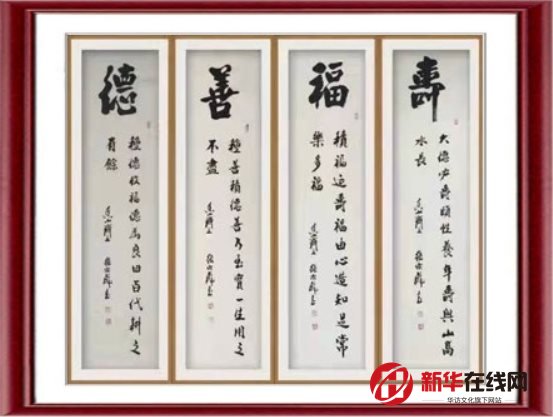 壽
大德必壽頤性養年壽與山高
水長
福
積福延壽福由心造知足常
樂多福
善
種善積德善乃至寶一生用之
不盡
德
種德收福德為良田百代耕之
有餘
新华在线网
华访文化旗下网站